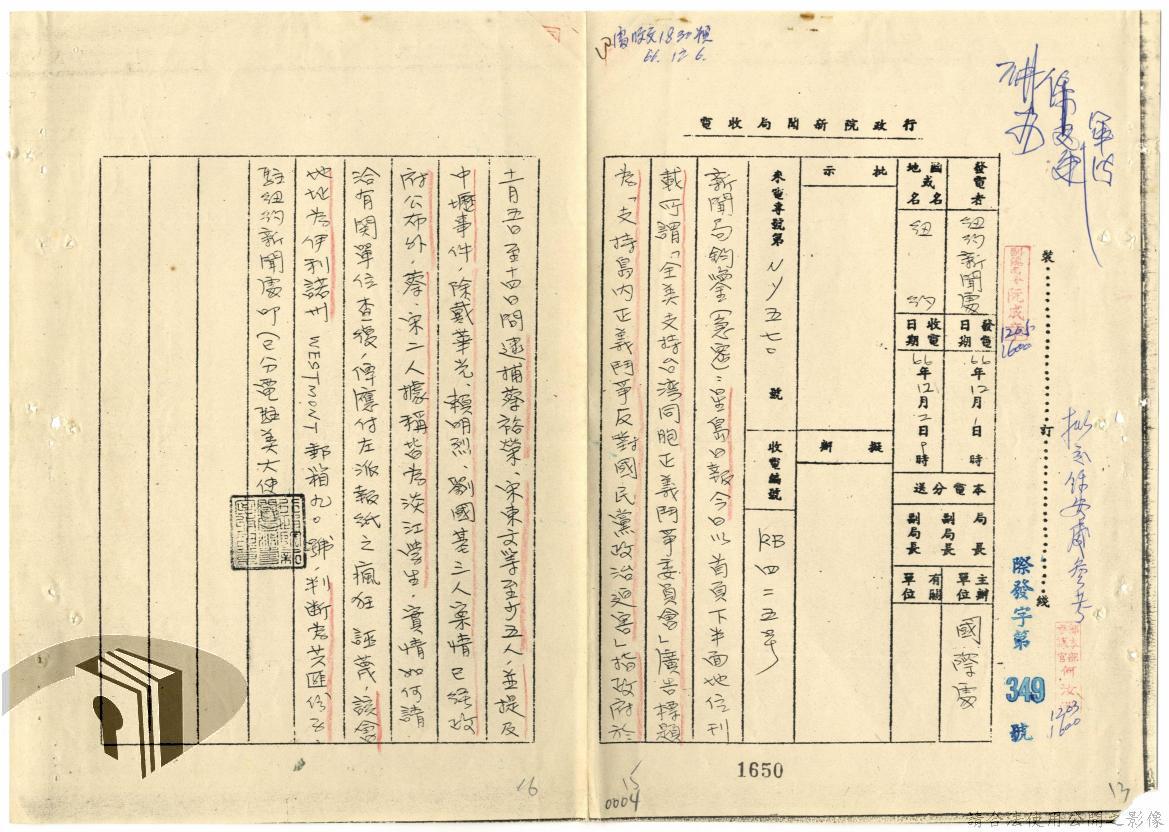 處收文1830號
66.12.6.
行政院新聞局收電
發電者
紐約新聞處
國或地名
紐約
發電日期
66年12月1日 時
收電日期
66年12月2日9時
本電分送
局長
副局長
副局長
主辦單位
有關單位
國際處
批示
擬辦
來電專號第NY五七〇號
收電編號
RB四二五号
新聞局鈞鑒(急密):星島日報今日以首頁下半面地位刊
載所謂「全美支持台灣同胞正義鬥爭委員會」廣告標題
為「支持島内正義鬥爭反對國民黨政治迫害」指政府於
十一月五日至十四日間逮捕蔡裕榮、宋東文等至少五人,並提及
中壢事件,除戴華光、賴明烈、劉國基三人案情已經政
府公布外,蔡、宋二人據稱皆為淡江學生,實情如何請
洽有関單位查復,俾應付左派報紙之瘋狂誣蔑,該會
地址為伊利諾州 WESTMONT 郵箱九〇號,判斷為共匪份子
駐紐約新聞處叩(已分電駐美大使
裝
訂
線
際發字第349號
1205
1600
1203
1600
1650
16
15
0004
13
請合法使用公開之影像